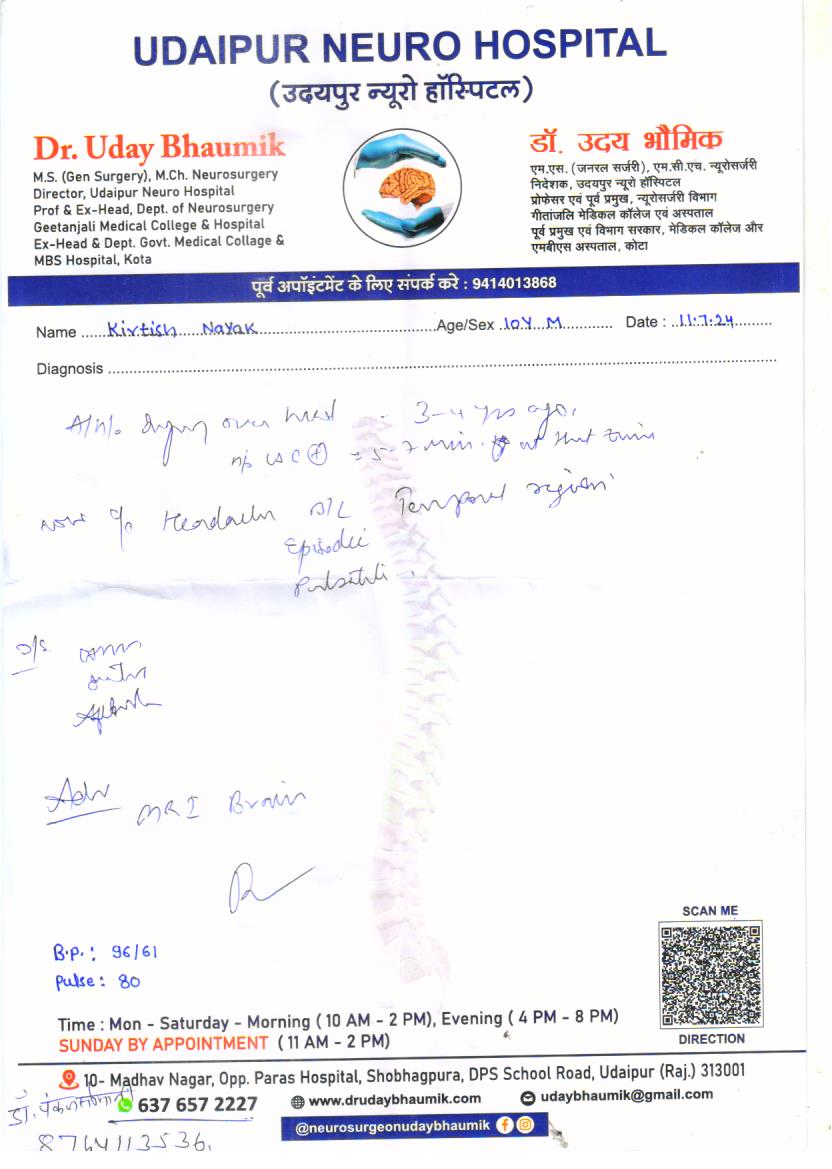 UDAIPUR NEURO HOSPITAL
(उदयपुर न्यूरो हॉस्पिटल)
Dr. Uday Bhaumik
M.S. (Gen Surgery), M.Ch. Neurosurgery
Director, Udaipur Neuro Hospital
Prof & Ex-Head, Dept. of Neurosurgery
Geetanjali Medical College & Hospital
Ex-Head & Dept. Govt. Medical Collage &
MBS Hospital, Kota
डॉ. उदय भौमिक
एम.एस. (जनरल सर्जरी), एम.सी.एच. न्यूरोसर्जरी
निदेशक, उदयपुर न्यूरो हॉस्पिटल
प्रोफेसर एवं पूर्व प्रमुख, न्यूरोसर्जरी विभाग
गीतांजलि मेडिकल कॉलेज एवं अस्पताल
पूर्व प्रमुख एवं विभाग सरकार, मेडिकल कॉलेज और
एमबीएस अस्पताल, कोटा
पूर्व अपॉइंटमेंट के लिए संपर्क करे : 9414013868
Name Kirtish Nayak Age/Sex 10Y M Date : 11.7.24
Diagnosis
over head - 3-4 yrs ago.
5-7 min. at that time
now c/o Headache B/L Temporal region
Episodic
Pulsatile
O/E
Adv MRI Brain
B.P. : 96/61
Pulse : 80
SCAN ME
DIRECTION
Time : Mon - Saturday - Morning ( 10 AM - 2 PM), Evening ( 4 PM - 8 PM)
SUNDAY BY APPOINTMENT ( 11 AM - 2 PM)
10- Madhav Nagar, Opp. Paras Hospital, Shobhagpura, DPS School Road, Udaipur (Raj.) 313001
637 657 2227 www.drudaybhaumik.com udaybhaumik@gmail.com
@neurosurgeonudaybhaumik
डॉ.
8764113536,